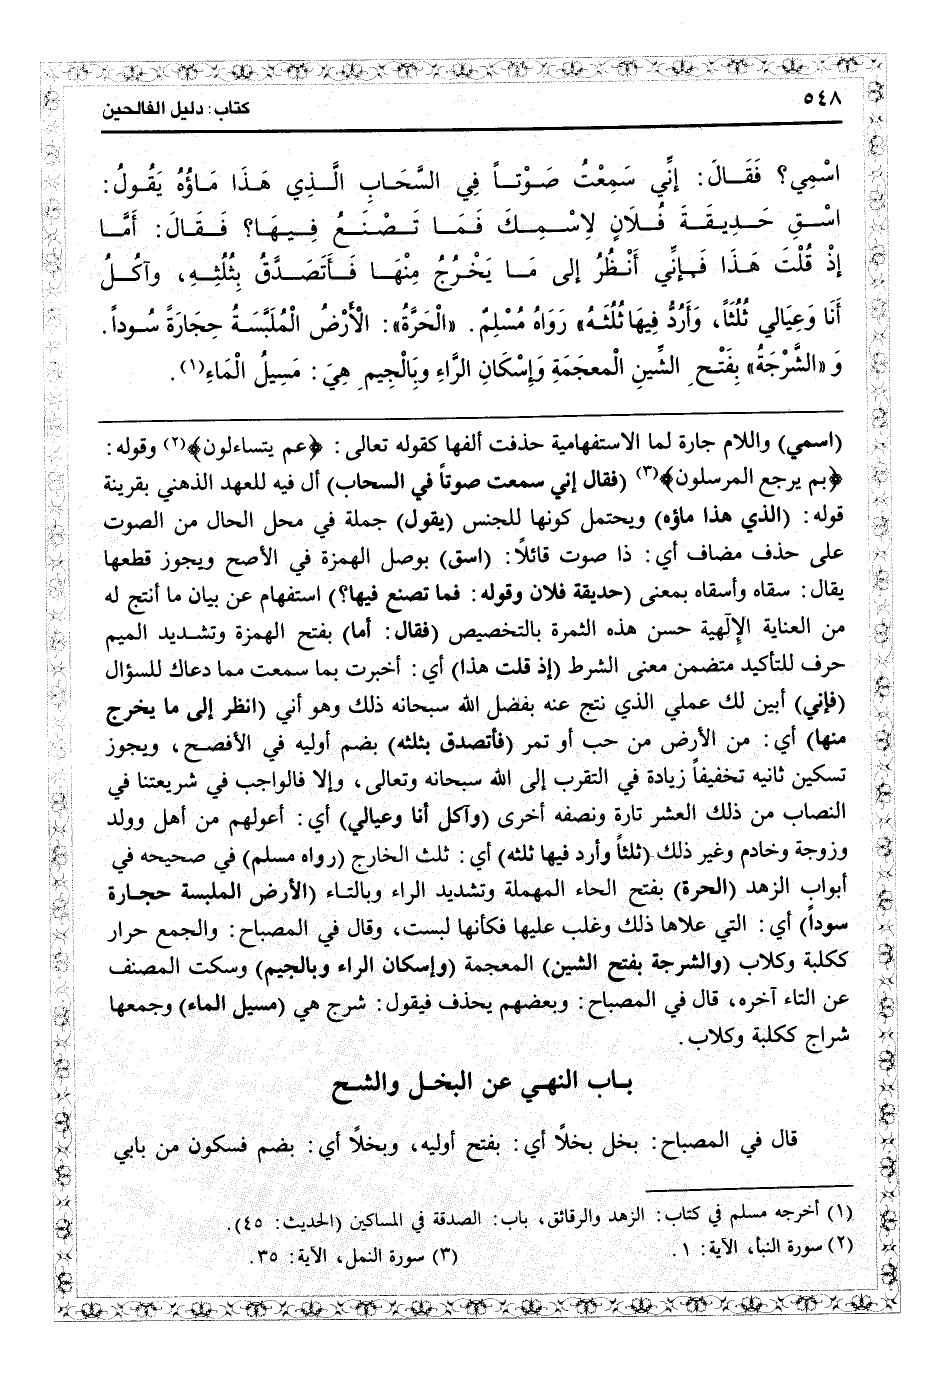 ٥٤٨
كتاب: دليل الفالحين
اسْمِي؟ فَقَالَ: إنِّي سَمِعْتُ صَوْتاً فِي السَّحَابِ الَّذِي هَذَا مَاؤُهُ يَقُولُ:
اسْقِ حَدِيقَةَ فُلَانٍ لِاسْمِكَ فَمَا تَصْنَعُ فِيهَا؟ فَقَالَ: أَمَّا
إذْ قُلْتَ هَذَا فَإنِّي أَنْظُرُ إلى مَا يَخْرُجُ مِنْهَا فَأَتَصَدَّقُ بِثُلُثِهِ، وآكُلُ
أَنَا وَعِيَالي ثُلُثَاً، وَأَرُدُّ فِيهَا ثُلُثَهُ» رَوَاهُ مُسْلِمٌ. «الْحَرَّةُ»: الْأَرْضُ الْمُلَبَّسَةُ حِجَارَةً سُوداً.
وَ «الشَّرْجَةُ» بِفَتْحِ الشِّينِ الْمعجَمَةِ وَإِسْكَانِ الرَّاءِ وبَالْجِيمِ هِيَ: مَسِيلُ الْمَاءِ(١).
(اسمي) واللام جارة لما الاستفهامية حذفت ألفها كقوله تعالى: ﴿عم يتساءلون﴾(٢) وقوله:
﴿بم يرجع المرسلون﴾(٣) (فقال إني سمعت صوتاً في السحاب) أل فيه للعهد الذهني بقرينة
قوله: (الذي هذا ماؤه) ويحتمل كونها للجنس (يقول) جملة في محل الحال من الصوت
على حذف مضاف أي: ذا صوت قائلاً: (اسق) بوصل الهمزة في الأصح ويجوز قطعها
يقال: سقاه وأسقاه بمعنى (حديقة فلان وقوله: فما تصنع فيها؟) استفهام عن بيان ما أنتج له
من العناية الإلٰهية حسن هذه الثمرة بالتخصيص (فقال: أما) بفتح الهمزة وتشديد الميم
حرف للتأكيد متضمن معنى الشرط (إذ قلت هذا) أي: أخبرت بما سمعت مما دعاك للسؤال
(فإني) أبين لك عملي الذي نتج عنه بفضل الله سبحانه ذلك وهو أني (انظر إلى ما يخرج
منها) أي: من الأرض من حب أو تمر (فأتصدق بثلثه) بضم أوليه في الأفصح، ويجوز
تسكين ثانيه تخفيفاً زيادة في التقرب إلى الله سبحانه وتعالى، وإلا فالواجب في شريعتنا في
النصاب من ذلك العشر تارة ونصفه أخرى (وآكل أنا وعيالي) أي: أعولهم من أهل وولد
وزوجة وخادم وغير ذلك (ثلثاً وأرد فيها ثلثه) أي: ثلث الخارج (رواه مسلم) في صحيحه في
أبواب الزهد (الحرة) بفتح الحاء المهملة وتشديد الراء وبالتاء (الأرض الملبسة حجارة
سوداً) أي: التي علاها ذلك وغلب عليها فكأنها لبست، وقال في المصباح: والجمع حرار
ككلبة وكلاب (والشرجة بفتح الشين) المعجمة (وإسكان الراء وبالجيم) وسكت المصنف
عن التاء آخره، قال في المصباح: وبعضهم يحذف فيقول: شرج هي (مسيل الماء) وجمعها
شراج ككلبة وكلاب.
باب النهي عن البخل والشح
قال في المصباح: بخل بخلاً أي: بفتح أوليه، وبخلاً أي: بضم فسكون من بابي
(١) أخرجه مسلم في كتاب: الزهد والرقائق، باب: الصدقة في المساكين (الحديث: ٤٥).
(٢) سورة النبأ، الآية: ١. (٣) سورة النمل، الآية: ٣٥.